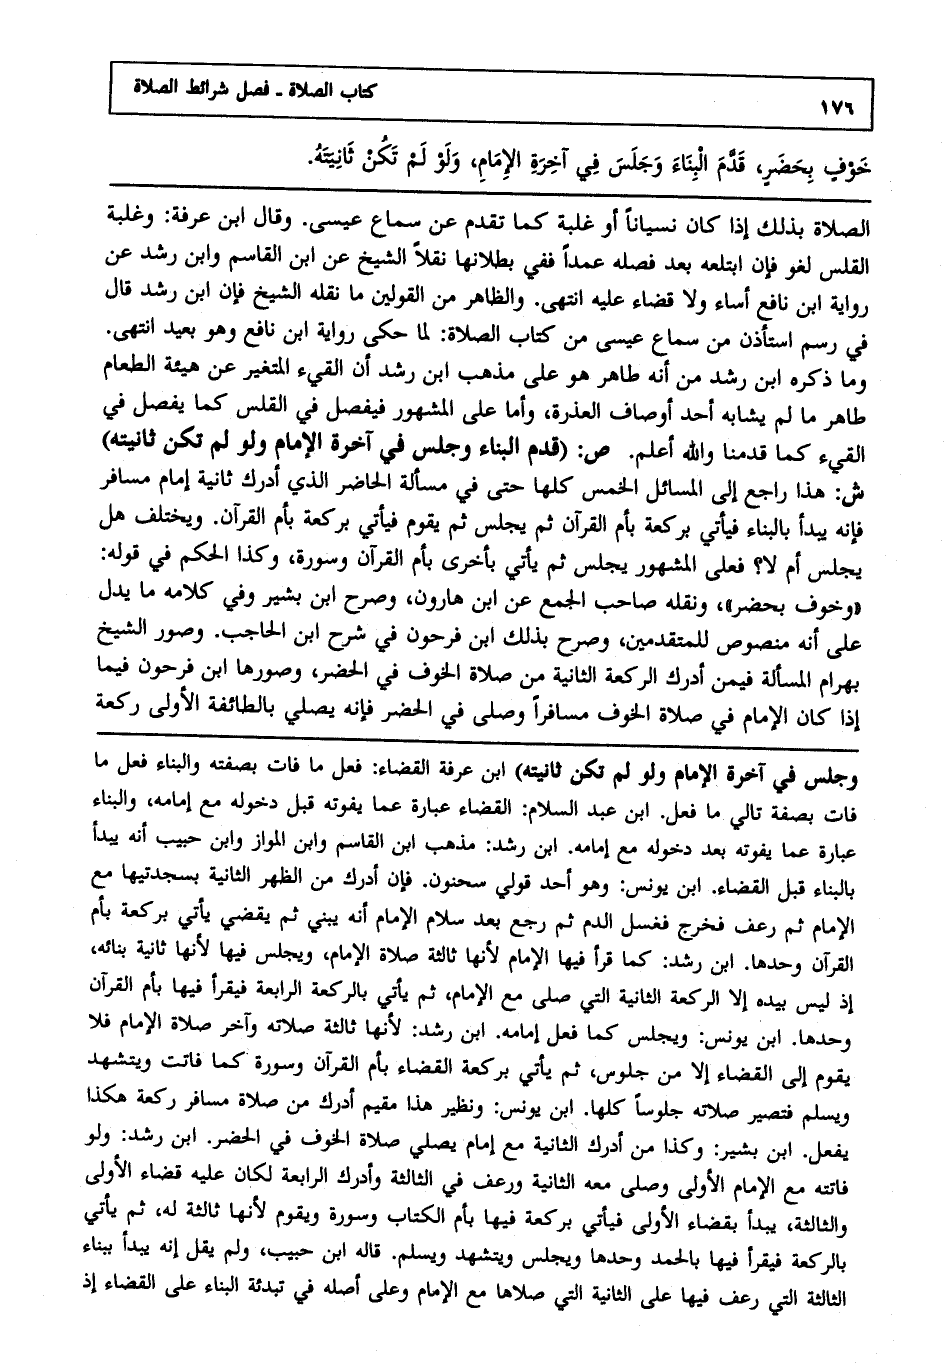 ١٧٦
كتاب الصلاة ـ فصل شرائط الصلاة
خَوْفٍ بِحَضَرٍ، قَدَّمَ الْبِنَاءَ وَجَلَسَ فِي آخِرَةِ الإِمَامِ، وَلَوْ لَمْ تَكُنْ ثَانِيَتَهُ.
الصلاة بذلك إذا كان نسياناً أو غلبة كما تقدم عن سماع عيسى. وقال ابن عرفة: وغلبة
القلس لغو فإن ابتلعه بعد فصله عمداً ففي بطلانها نقلاً الشيخ عن ابن القاسم وابن رشد عن
رواية ابن نافع أساء ولا قضاء عليه انتهى. والظاهر من القولين ما نقله الشيخ فإن ابن رشد قال
في رسم استأذن من سماع عيسى من كتاب الصلاة: لما حكى رواية ابن نافع وهو بعيد انتهى.
وما ذكره ابن رشد من أنه طاهر هو على مذهب ابن رشد أن القيء المتغير عن هيئة الطعام
طاهر ما لم يشابه أحد أوصاف العذرة، وأما على المشهور فيفصل في القلس كما يفصل في
القيء كما قدمنا والله أعلم. ص: (قدم البناء وجلس في آخرة الإمام ولو لم تكن ثانيته)
ش: هذا راجع إلى المسائل الخمس كلها حتى في مسألة الحاضر الذي أدرك ثانية إمام مسافر
فإنه يبدأ بالبناء فيأتي بركعة بأم القرآن ثم يجلس ثم يقوم فيأتي بركعة بأم القرآن. ويختلف هل
يجلس أم لا؟ فعلى المشهور يجلس ثم يأتي بأخرى بأم القرآن وسورة، وكذا الحكم في قوله:
«وخوف بحضر»، ونقله صاحب الجمع عن ابن هارون، وصرح ابن بشير وفي كلامه ما يدل
على أنه منصوص للمتقدمين، وصرح بذلك ابن فرحون في شرح ابن الحاجب. وصور الشيخ
بهرام المسألة فيمن أدرك الركعة الثانية من صلاة الخوف في الحضر، وصورها ابن فرحون فيما
إذا كان الإمام في صلاة الخوف مسافراً وصلى في الحضر فإنه يصلي بالطائفة الأولى ركعة
وجلس في آخرة الإمام ولو لم تكن ثانيته) ابن عرفة القضاء: فعل ما فات بصفته والبناء فعل ما
فات بصفة تالي ما فعل. ابن عبد السلام: القضاء عبارة عما يفوته قبل دخوله مع إمامه، والبناء
عبارة عما يفوته بعد دخوله مع إمامه. ابن رشد: مذهب ابن القاسم وابن المواز وابن حبيب أنه يبدأ
بالبناء قبل القضاء. ابن يونس: وهو أحد قولي سحنون. فإن أدرك من الظهر الثانية بسجدتيها مع
الإمام ثم رعف فخرج فغسل الدم ثم رجع بعد سلام الإمام أنه يبني ثم يقضي يأتي بركعة بأم
القرآن وحدها. ابن رشد: كما قرأ فيها الإمام لأنها ثالثة صلاة الإمام، ويجلس فيها لأنها ثانية بنائه،
إذ ليس بيده إلا الركعة الثانية التي صلى مع الإمام، ثم يأتي بالركعة الرابعة فيقرأ فيها بأم القرآن
وحدها. ابن يونس: ويجلس كما فعل إمامه. ابن رشد: لأنها ثالثة صلاته وآخر صلاة الإمام فلا
يقوم إلى القضاء إلا من جلوس، ثم يأتي بركعة القضاء بأم القرآن وسورة كما فاتت ويتشهد
ويسلم فتصير صلاته جلوساً كلها. ابن يونس: ونظير هذا مقيم أدرك من صلاة مسافر ركعة هكذا
يفعل. ابن بشير: وكذا من أدرك الثانية مع إمام يصلي صلاة الخوف في الحضر. ابن رشد: ولو
فاتته مع الإمام الأولى وصلى معه الثانية ورعف في الثالثة وأدرك الرابعة لكان عليه قضاء الأولى
والثالثة، يبدأ بقضاء الأولى فيأتي بركعة فيها بأم الكتاب وسورة ويقوم لأنها ثالثة له، ثم يأتي
بالركعة فيقرأ فيها بالحمد وحدها ويجلس ويتشهد ويسلم. قاله ابن حبيب، ولم يقل إنه يبدأ ببناء
الثالثة التي رعف فيها على الثانية التي صلاها مع الإمام وعلى أصله في تبدئة البناء على القضاء إذ